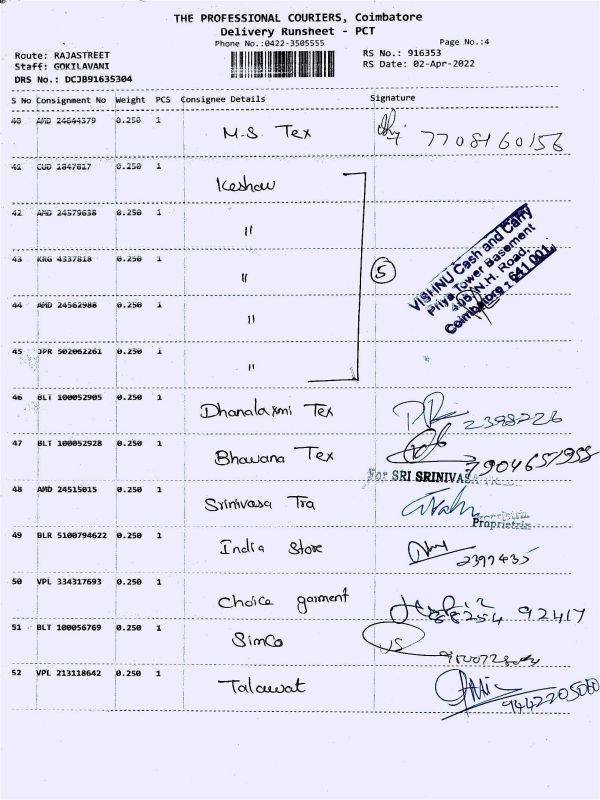 THE PROFESSIONAL COURIERS, Coimbatore
Delivery Runsheet - PCT
Phone No.:0422-3505555
Page No.:4
Route: RAJASTREET
RS No.: 916353
Staff: GOKILAVANI
RS Date: 02-Apr-2022
DRS No.: DCJB91635304
S No Consignment No Weight PCS Consignee Details Signature
40 AMD 24644379 0.250 1 M.S. Tex 7708160156
41 CUD 1847817 0.250 1 Keshav
42 AMD 24579638 0.250 1 "
43 KRG 4337818 0.250 1 "
5
VISHNU Cash and Carry
Priya Tower Basement
406, N.H. Road,
Coimbatore - 641 001.
44 AMD 24562988 0.250 1 "
45 JPR 502062261 0.250 1 "
46 BLT 100052905 0.250 1 Dhanalaxmi Tex 2398226
47 BLT 100052928 0.250 1 Bhawana Tex 7904651958
For SRI SRINIVASA
48 AMD 24515015 0.250 1 Srinivasa Tra
Proprietrix
49 BLR 5100794622 0.250 1 India Store 2397435
50 VPL 334317693 0.250 1 Choice garment 88254 92417
51 BLT 100056769 0.250 1 SimCo US
52 VPL 213118642 0.250 1 Talawat 9442205000